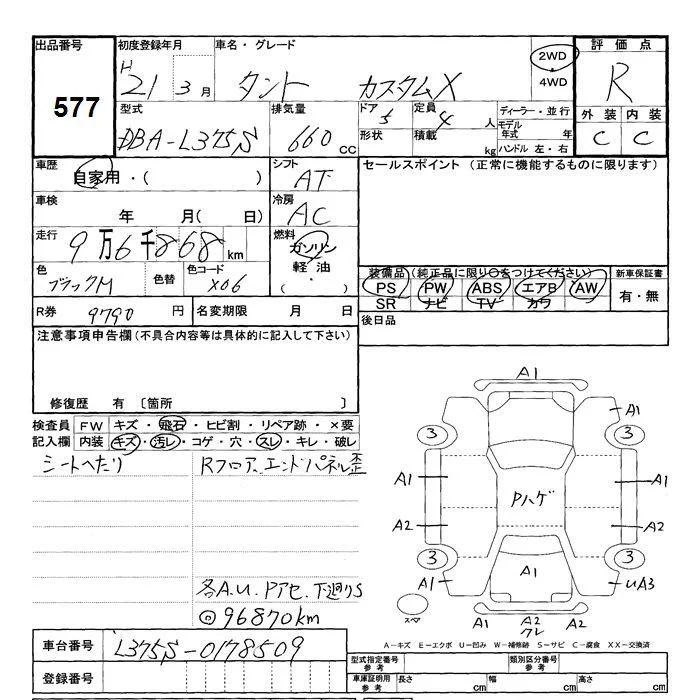 出品番号 初度登録年月 車名・グレード 評価点
577
H 21 3月 タント カスタムX 2WD・4WD R
型式 排気量 ドア 定員 ディーラー・並行 外装 内装
DBA-L375S 660cc 5 4人 モデル年式 年 C C
形状 積載 kg ハンドル 左・右
車歴 シフト セールスポイント (正常に機能するものに限ります)
自家用・( ) AT
車検 冷房
年 月( 日) AC
走行 燃料
9万6千868km ガソリン
色 色替 色コード 軽油
ブラックM X06 ( ・ )
装備品(純正品に限り○をつけてください) 新車保証書
PS PW ABS エアB AW 有・無
SR ナビ TV カワ
R券 9790円 名変期限 月 日 後日品
注意事項申告欄(不具合内容等は具体的に記入して下さい)
修復歴 有 〔箇所 〕
検査員 FW キズ・飛石・ヒビ割・リペア跡・×要
記入欄 内装 キズ・汚レ・コゲ・穴・スレ・キレ・破レ
シートへたり Rフロア、エンドパネル歪
各A.U. Pアセ 下廻りS
◎96870km
A1
A1
3 3
A1 Pハゲ A1
A2 A2
3 3
A1 A1 UA3
スペア A1 A2 A2
クレ
A-キズ E-エクボ U-凹み W-補修跡 S-サビ C-腐食 XX-交換済
車台番号 L375S-0178509
型式指定番号 参考 類別区分番号 参考
登録番号
車庫証明用 参考 長さ cm 幅 cm 高さ cm